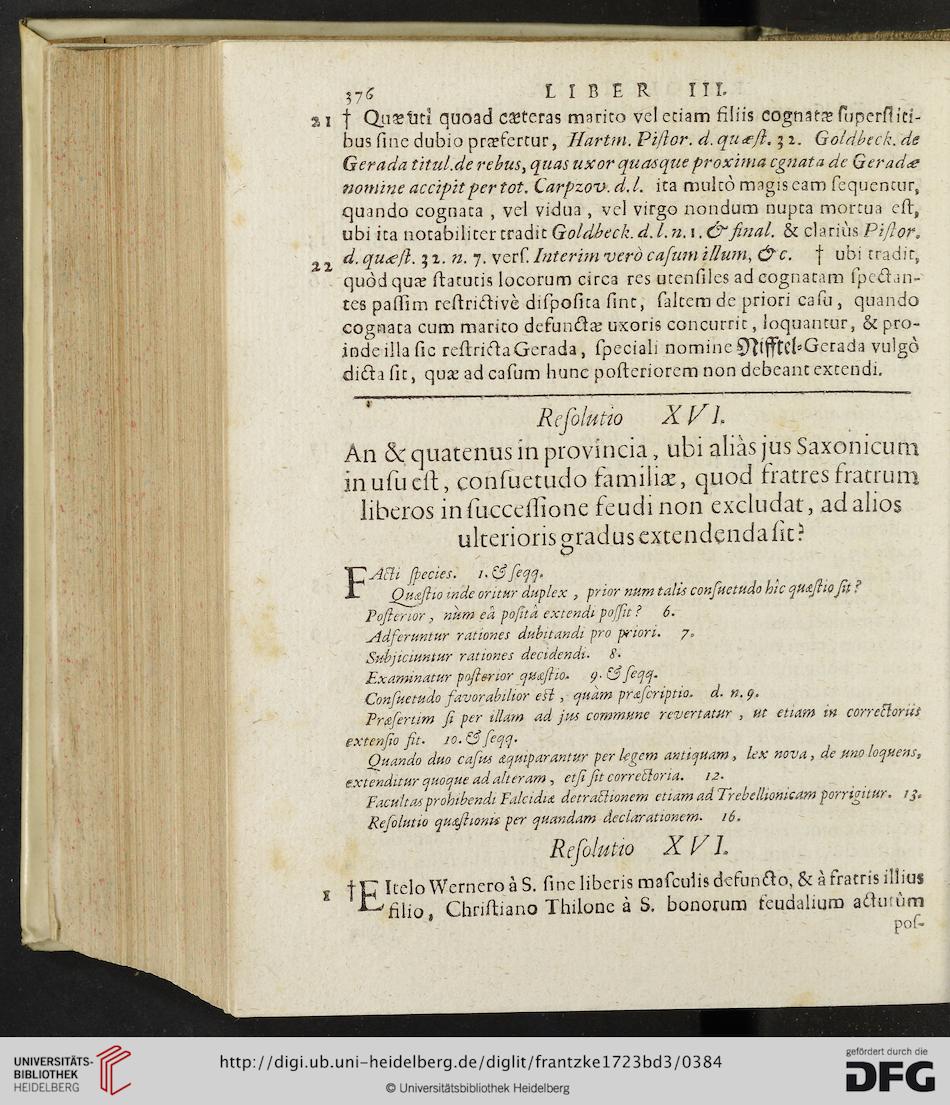 376 LIBER III.
21 † Quæ uti quoad cæteras marito vel etiam filiis cognatæ ſuperſtiti-
bus ſine dubio præfertur, Hartm. Piſtor. d. quæſt. 32. Goldbeck. de
Gerada titul. de rebus, quas uxor quasque proxima cgnata de Geradæ
nomine accipit per tot. Carpzov. d. l. ita multò magis eam ſequentur,
quando cognata, vel vidua, vel virgo nondum nupta mortua eſt,
ubi ita notabiliter tradit Goldbeck. d. l. n. 1. & final. & clariùs Piſtor.
22 d. quæſt. 32. n. 7. verſ. Interim verò caſum illum, &c. † ubi tradit,
quòd quæ ſtatutis locorum circa res utenſiles ad cognatam ſpectan-
tes paſſim reſtrictivè diſpoſita ſint, ſaltem de priori caſu, quando
cognata cum marito defunctæ uxoris concurrit, loquantur, & pro-
inde illa ſic reſtricta Gerada, ſpeciali nomine Nifftel-Gerada vulgò
dicta ſit, quæ ad caſum hunc poſteriorem non debeant extendi.
Reſolutio XVI.
An & quatenus in provincia, ubi aliàs jus Saxonicum
in uſu eſt, conſuetudo familiæ, quod fratres fratrum
liberos in ſucceſſione feudi non excludat, ad alios
ulterioris gradus extendenda ſit?
FActi ſpecies. 1. & ſeqq.
Quæſtio inde oritur duplex, prior num talis conſuetudo hîc quæſtio ſit?
Poſterior, nùm eâ poſitâ extendi poſſit? 6.
Adferuntur rationes dubitandi pro priori. 7.
Subjiciuntur rationes decidendi. 8.
Examinatur poſterior quæſtio. 9. & ſeqq.
Conſuetudo favorabilior eſt, quàm præſcriptio. d. n. 9.
Præſertim ſi per illam ad jus commune revertatur, ut etiam in correctoriis
extenſio fit. 10. & ſeqq.
Quando duo caſus æquiparantur per legem antiquam, lex nova, de uno loquens,
extenditur quoque ad alteram, etſi ſit correctoria. 12.
Facultas prohibendi Falcidiæ detractionem etiam ad Trebellionicam porrigitur. 13.
Reſolutio quæſtionis per quandam declarationem. 16.
Reſolutio XVI.
1 † EItelo Wernero à S. ſine liberis maſculis defuncto, & à fratris illius
filio, Chriſtiano Thilone à S. bonorum feudalium actutùm
poſ-
UNIVERSITÄTS-
BIBLIOTHEK
HEIDELBERG
http://digi.ub.uni-heidelberg.de/diglit/frantzke1723bd3/0384
© Universitätsbibliothek Heidelberg
gefördert durch die
DFG